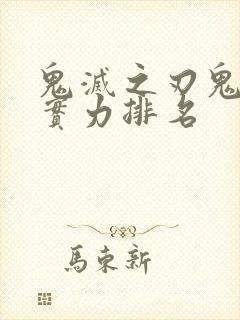 鬼滅之刃鬼
實力排名
馬東新